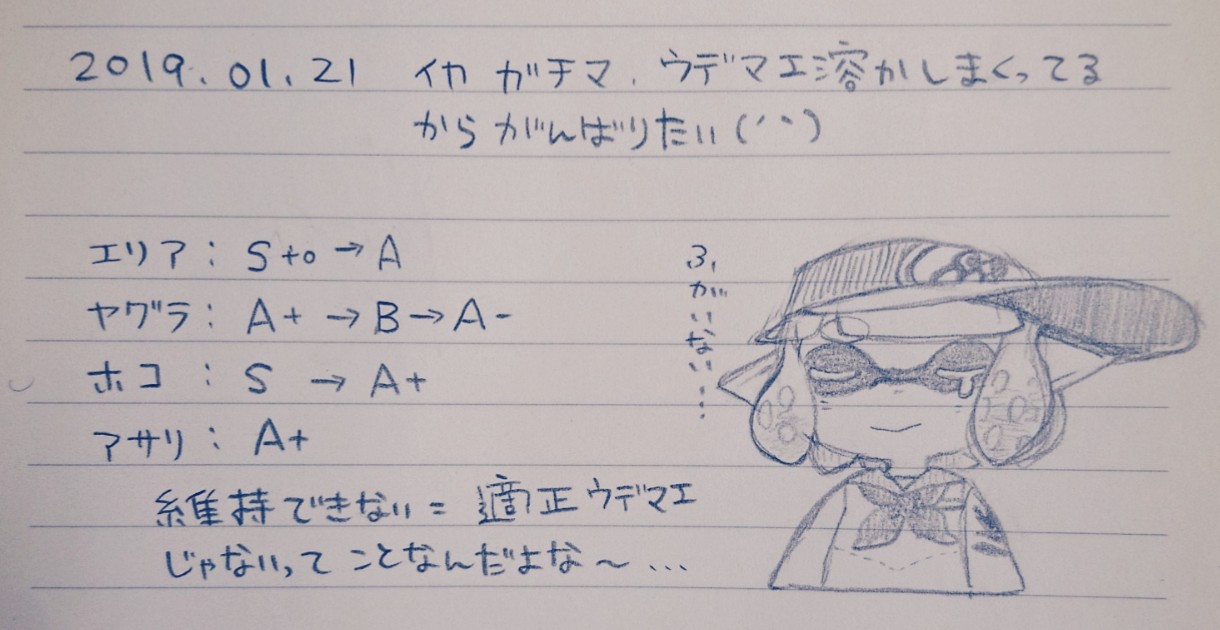 2019.01.21 イカ ガチマ、ウデマエ溶かしまくってる
からがんばりたい(´`)
エリア: S+0→A
ヤグラ: A+→B→A-
ホコ: S→A+
アサリ: A+
維持できない=適正ウデマエ
じゃないってことなんだよな〜…
ふがいない……